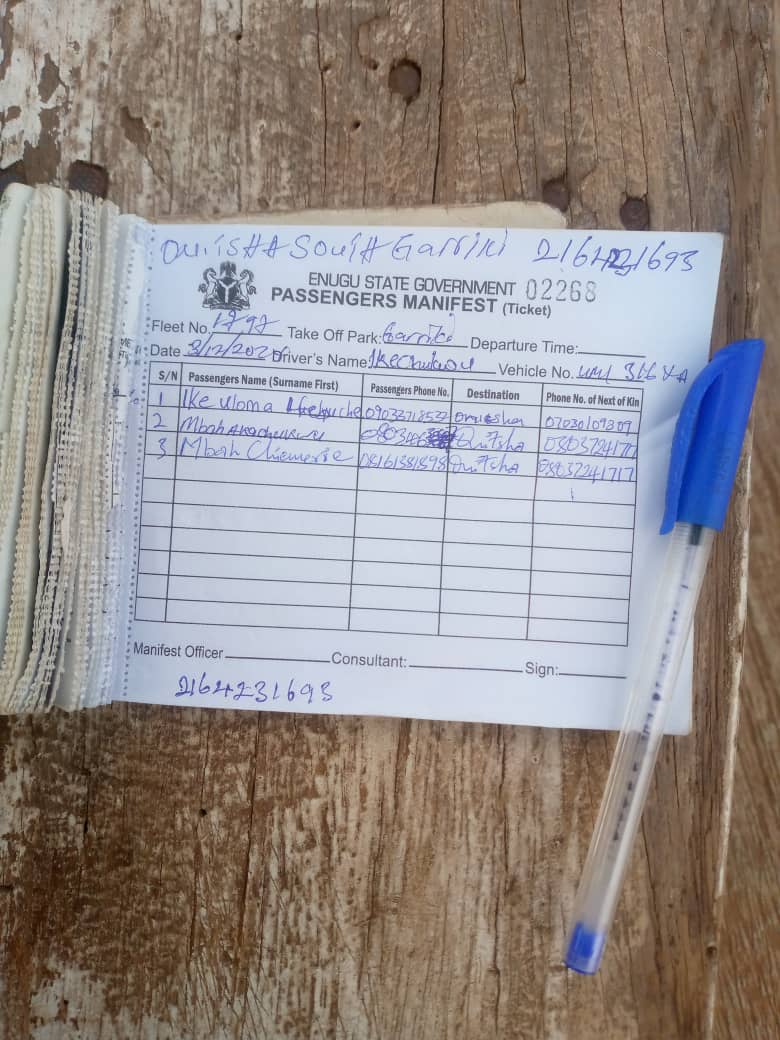 South Garriki
ENUGU STATE GOVERNMENT 02268
PASSENGERS MANIFEST (Ticket)
Fleet No. Take Off Park: Garriki Departure Time:
Date 3/12/202 Driver's Name: Ikechukwu Vehicle No. 316 XA
S/N Passengers Name (Surname First) Passengers Phone No. Destination Phone No. of Next of Kin
1 Ike uloma 07030109309
2 Mbah Onitsha
3 Mbah Chiemerie 08161381898 Onitsha 08037241717
Manifest Officer Consultant: Sign:
2164231693